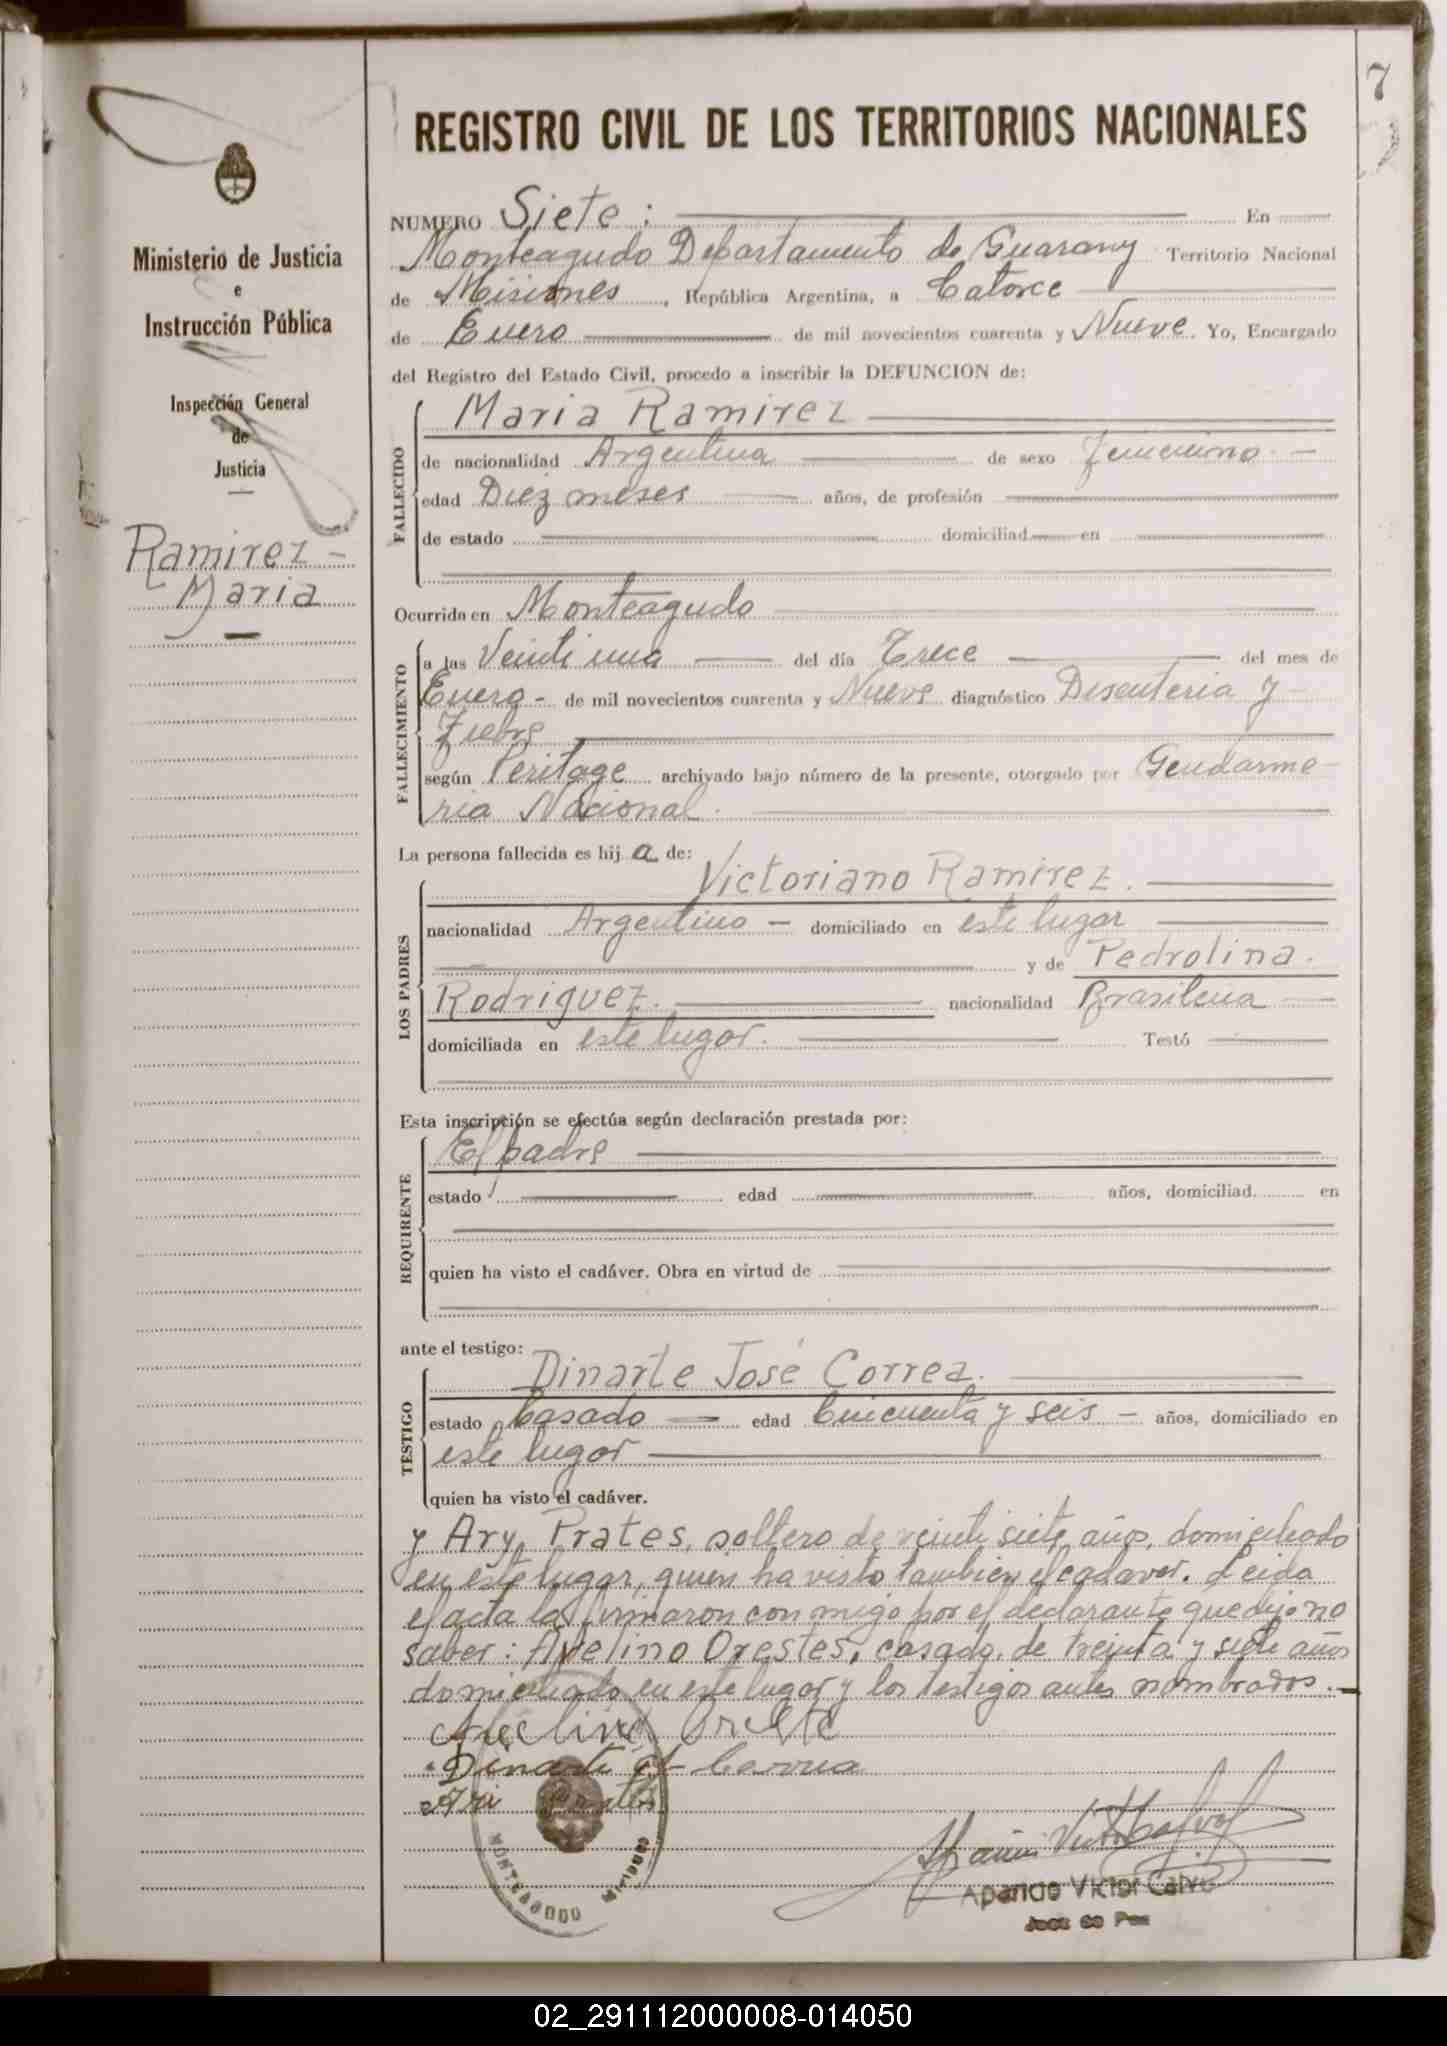 7
REGISTRO CIVIL DE LOS TERRITORIOS NACIONALES
Ministerio de Justicia
e
Instrucción Pública
Inspección General
de
Justicia
Ramirez -
Maria
NUMERO Siete : En
Monteagudo Departamento de Guarany Territorio Nacional
de Misiones, República Argentina, a Catorce
de Enero de mil novecientos cuarenta y Nueve. Yo, Encargado
del Registro del Estado Civil, procedo a inscribir la DEFUNCION de:
FALLECIDO
Maria Ramirez
de nacionalidad Argentina de sexo femenino. -
edad Diez meses años, de profesión
de estado domiciliad en
Ocurrida en Monteagudo
FALLECIMIENTO
a las Veinti una del día Trece del mes de
Enero - de mil novecientos cuarenta y Nueve diagnóstico Disenteria y
fiebre
según Peritage archivado bajo número de la presente, otorgado por Gendarme-
ria Nacional.
La persona fallecida es hij a de:
LOS PADRES
Victoriano Ramirez.
nacionalidad Argentino - domiciliado en este lugar
y de Pedrolina.
Rodriguez. nacionalidad Brasilena
domiciliada en este lugar. Testó
Esta inscripción se efectúa según declaración prestada por:
REQUIRENTE
El padre
estado edad años, domiciliad en
quien ha visto el cadáver. Obra en virtud de
ante el testigo:
TESTIGO
Dinarte José Correa.
estado Casado edad Cincuenta y seis - años, domiciliado en
este lugar
quien ha visto el cadáver.
y Ary Prates, soltero de veinti siete años, domiciliado
en este lugar, quien ha visto tambien el cadaver. Leida
el acta la firmaron conmigo por el declarante que dijo no
saber: Avelino Orestes, casado, de treinta y siete años
domiciliado en este lugar y los testigos antes nombrados. -
Avelino Oreste
Dinarte
Ari Prates
MONTEAGUDO Misiones
Aparicio Victor Calvo
Juez de Paz
02_291112000008-014050